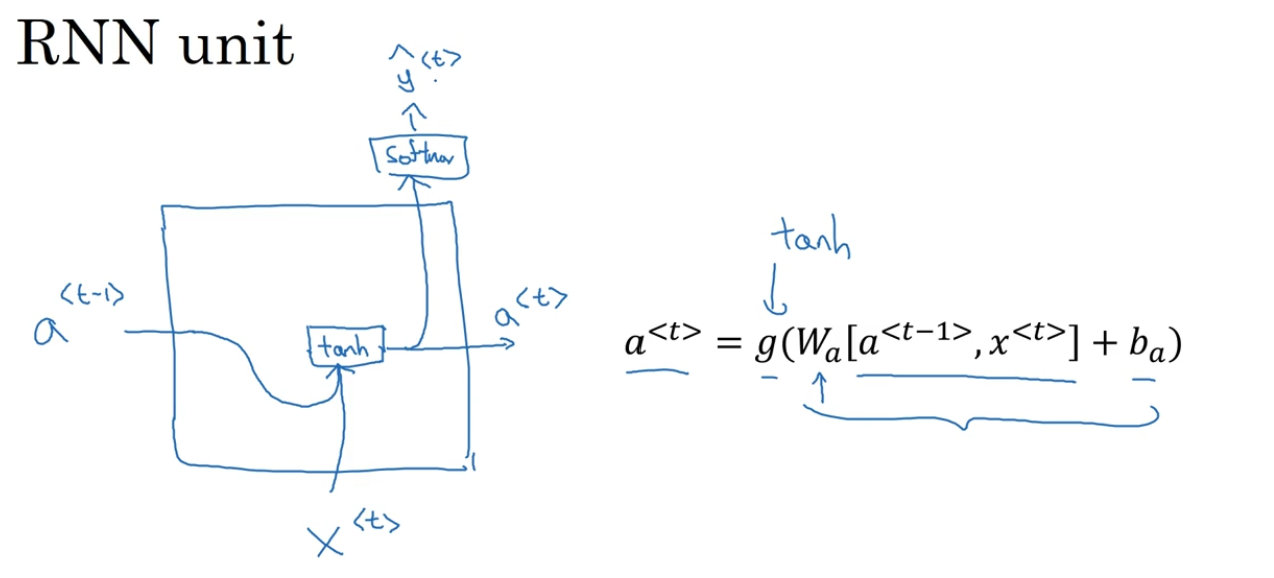 RNN unit
ŷ<t>
softmax
tanh
a<t-1>
a<t>
tanh
a<t> = g(Wa[a<t−1>, x<t>] + ba)
x<t>